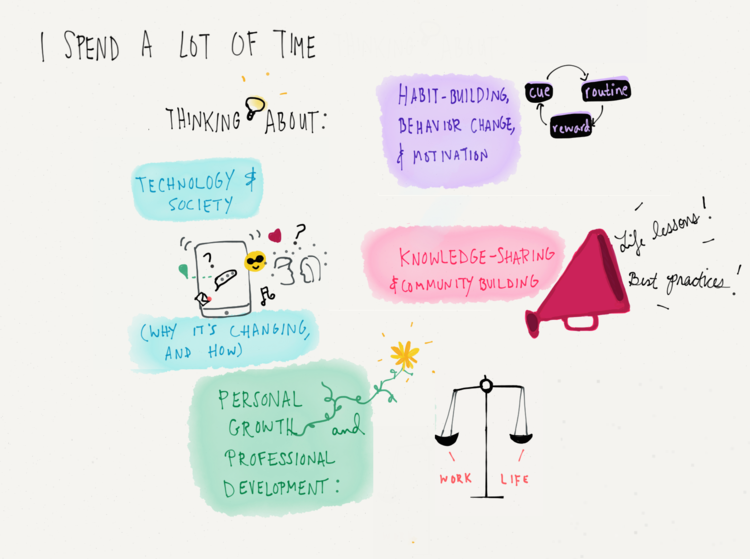 I SPEND A LOT OF TIME
THINKING ABOUT:
TECHNOLOGY &
SOCIETY
?
?
(WHY IT'S CHANGING,
AND HOW)
HABIT-BUILDING,
BEHAVIOR CHANGE,
& MOTIVATION
cue
routine
reward
KNOWLEDGE-SHARING
& COMMUNITY BUILDING
Life lessons!
Best practices!
PERSONAL
GROWTH and
PROFESSIONAL
DEVELOPMENT:
WORK
LIFE